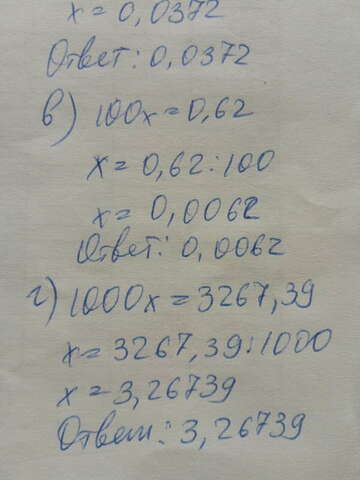 x = 0,0372
Ответ: 0,0372
в) 100x = 0,62
x = 0,62 : 100
x = 0,0062
Ответ: 0,0062
г) 1000x = 3267,39
x = 3267,39 : 1000
x = 3,26739
Ответ: 3,26739